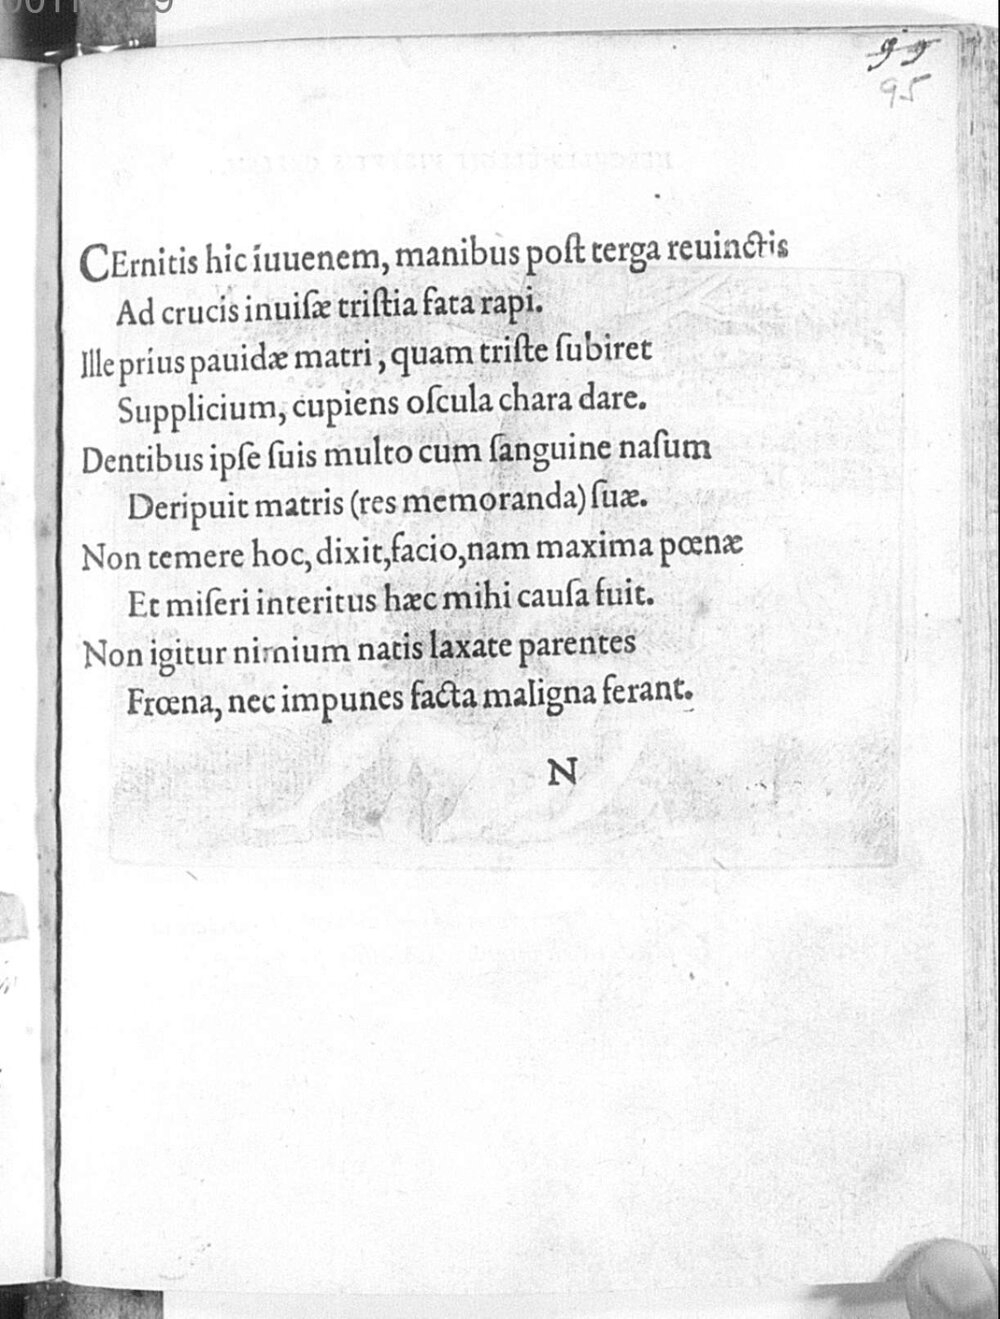 99
95
CErnitis hic iuuenem, manibus poſt terga reuinctis
Ad crucis inuiſæ triſtia fata rapi.
Ille prius pauidæ matri, quam triſte ſubiret
Supplicium, cupiens oſcula chara dare.
Dentibus ipſe ſuis multo cum ſanguine naſum
Deripuit matris (res memoranda) ſuæ.
Non temere hoc, dixit, facio, nam maxima pœnæ
Et miſeri interitus hæc mihi cauſa fuit.
Non igitur nimium natis laxate parentes
Frœna, nec impunes facta maligna ferant.
N